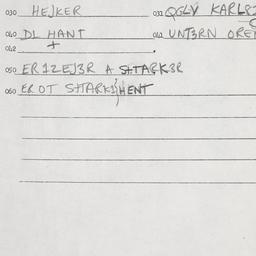 030 HEJKER 032 QGLV KARLS
040 DL HANT 042 UNT3RN OREN
042 +
050 ER1ZEJ3R A STTARK3R
060 ER OT STTARKS HENT